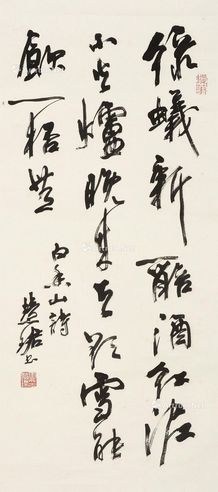 綠蟻新醅酒紅泥
小火爐晚來天欲雪能
飲一桮無
白香山詩
慧珺书